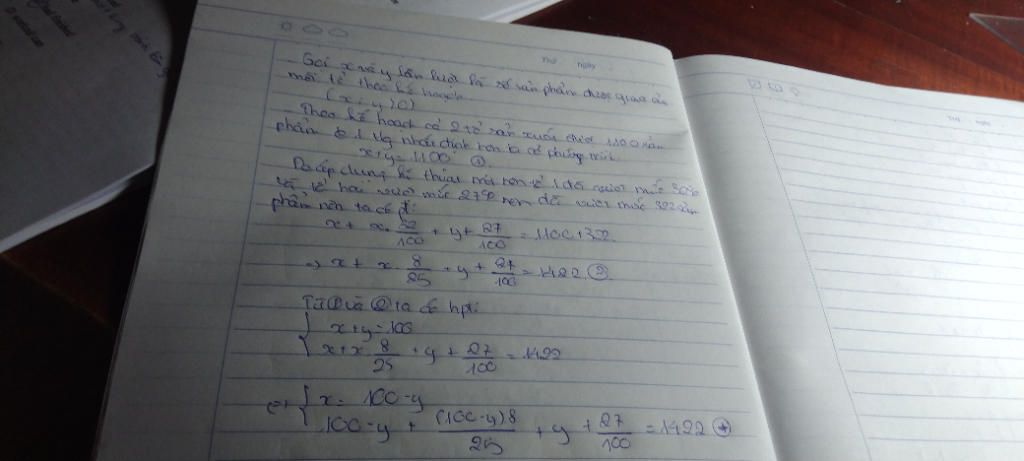 Thứ ngày
- Gọi x và y lần lượt là số sản phẩm được của
mỗi tổ theo kế hoạch
(x; y > 0)
- Theo kế hoạch cả 2 tổ sản xuất được 1100 sản
phẩm ở 1 tg nhất định nên ta có phương trình
x+y = 1100 ①.
Do áp dụng kĩ thuật mới nên tổ 1 đã vượt mức
và tổ hai vượt mức 27% nên đã vượt mức 322 sản
phẩm nên ta có pt:
x + x. 32/100 + y + 27/100 = 1100 + 322
=> x + x. 8/25 + y + 27/100 = 1422 ②
Từ ① và ② ta có hpt:
{ x+y = 100
x + x. 8/25 + y + 27/100 = 1422
<=> { x = 100 - y
100 - y + (100 - y)8/25 + y + 27/100 = 1422 (*)
Thứ ngày